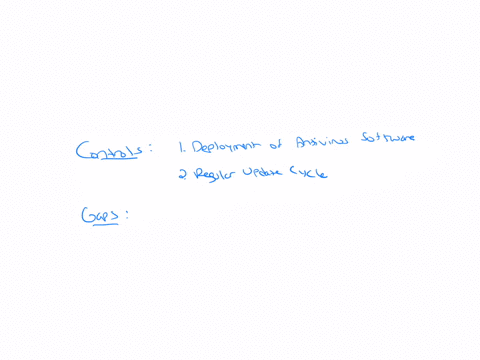 Controls: 1. Deployment of Antivirus Software
2. Regular Update Cycle
Gaps: